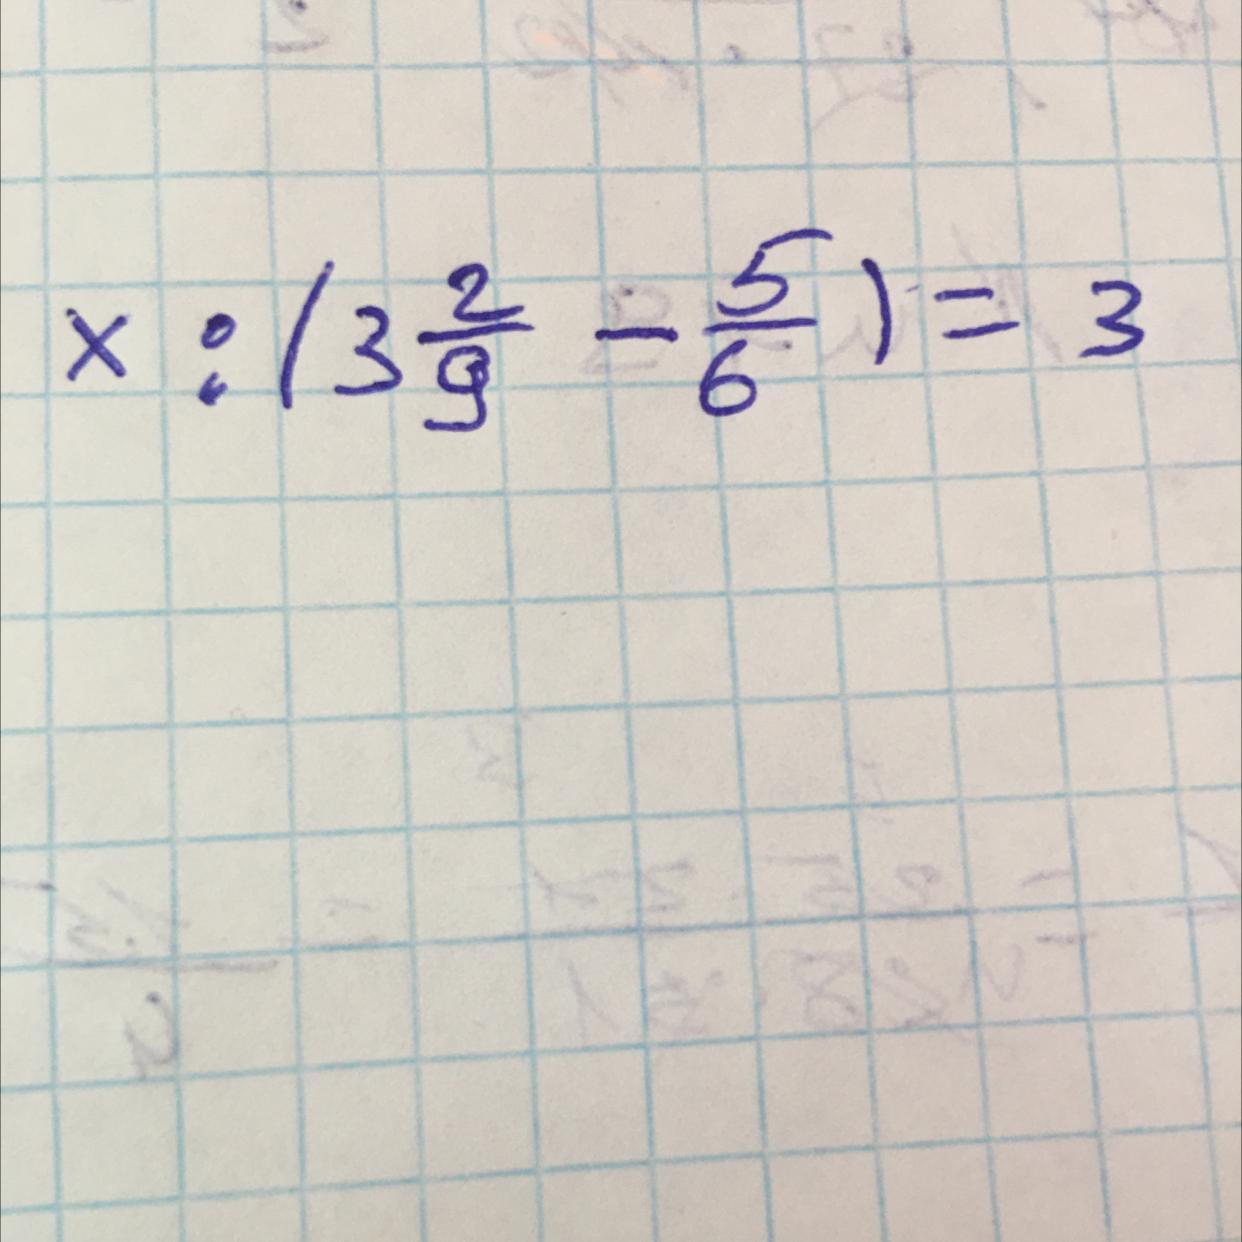 x : (3 2/9 - 5/6) = 3